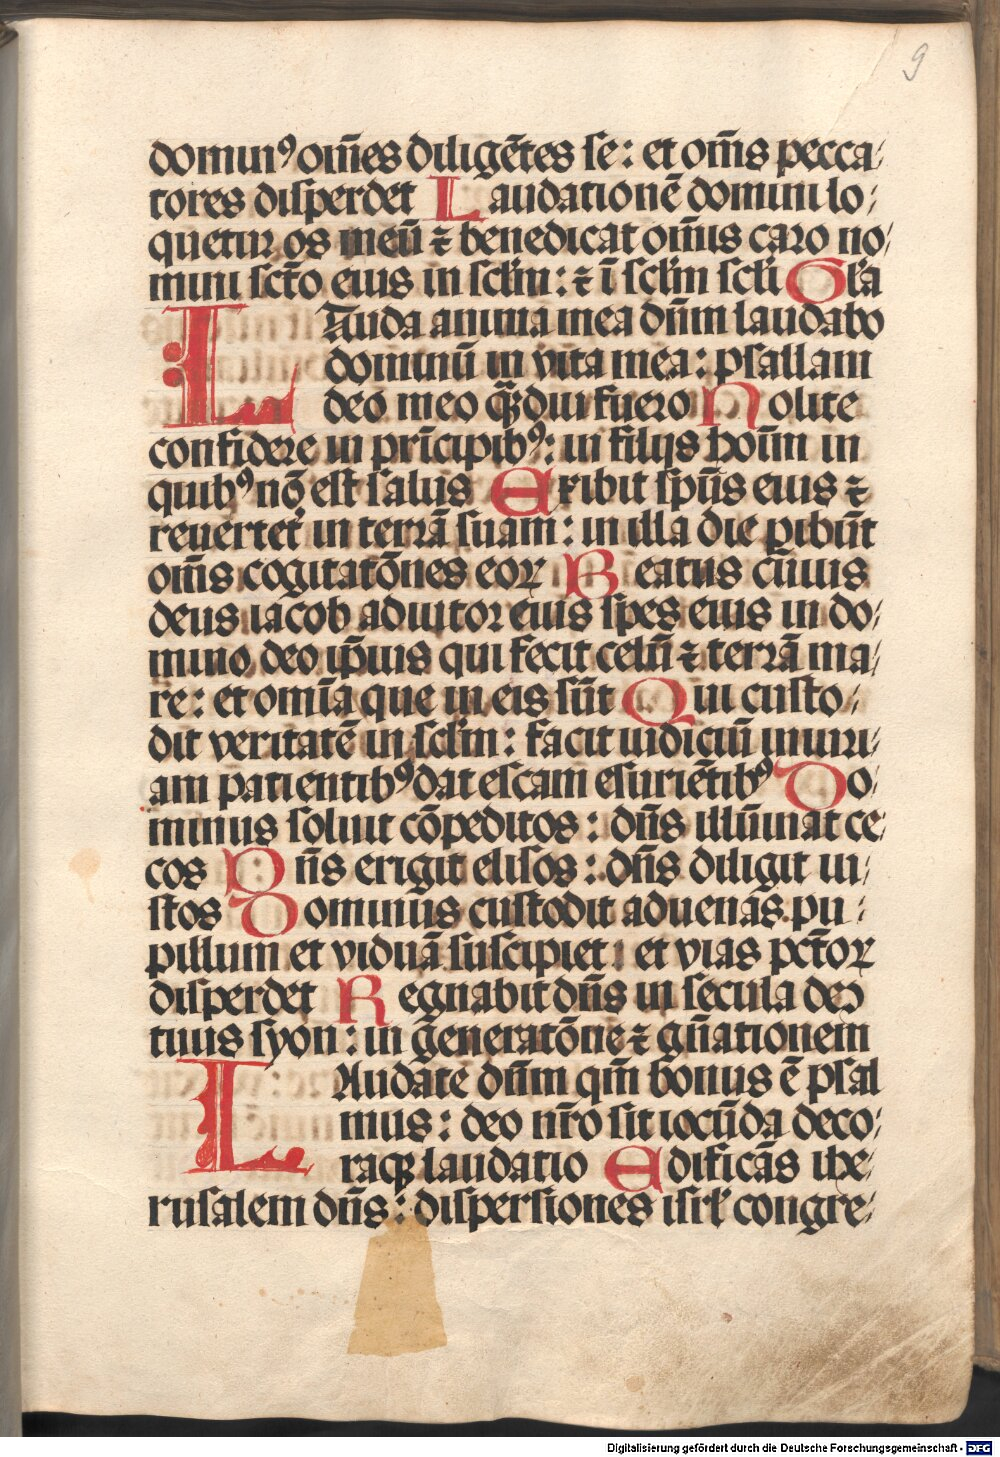 9
dominꝰ om̄es diligētes se: et om̄s pecca⸗
tores disperdet Laudationē domini lo⸗
quetur os meū ⁊ benedicat om̄is caro no⸗
mini sc̄to eius in sclm̄: ⁊ ī sclm̄ scli Gl'a
LAuda anima mea dn̄m laudabo
dominū in vita mea: psallam
deo meo qͣꝫdiu fuero Nolite
confidere in prīcipibꝰ: in filijs hoīm in
quibꝰ nō est salus Exibit spūs eius ⁊
reuertet' in terrā suam: in illa die ꝑibūt
om̄s cogitatōnes eoꝝ Beatus cūius
deus iacob adiutor eius spes eius in do⸗
mino deo ip̄ius qui fecit celū ⁊ terrā ma⸗
re: et omīa que in eis sūt Qui custo⸗
dit veritatē in sclm̄: facit iudiciū iniuri⸗
am patientibꝰ dat escam esuriētibꝰ Do⸗
minus soluit cōpeditos: dn̄s illūinat ce⸗
cos Dn̄s erigit elisos: dn̄s diligit iu⸗
stos Dominus custodit aduenas pu⸗
pillum et viduā suscipiet: et vias pct̄oꝝ
disperdet Regnabit dn̄s in secula deꝰ
tuus syon: in generatōne ⁊ gn̄ationem
LAudate dn̄m qm̄ bonus ē psal
mus: deo nr̄o sit iocūda deco⸗
raqꝫ laudatio Edificās ihe⸗
rusalem dn̄s: dispersiones isrl' congre⸗
Digitalisierung gefördert durch die Deutsche Forschungsgemeinschaft - DFG